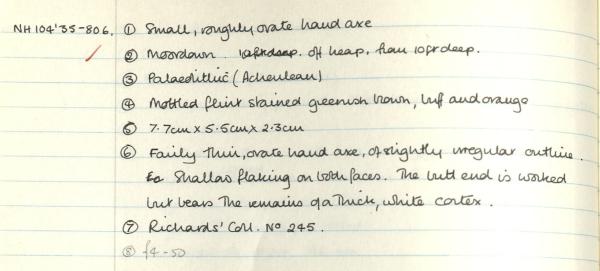 NH 104'35-806. ① Small, roughly ovate hand axe
② Moordown. 10ft deep. off heap, from 10ft deep.
③ Palaeolithic (Acheulean)
④ Mottled flint stained greenish brown, buff and orange
⑤ 7.7cm x 5.5cm x 2.3cm
⑥ Fairly thin, ovate hand axe, of slightly irregular outline.
Shallow flaking on both faces. The butt end is worked
but bears the remains of a thick, white cortex.
⑦ Richards' Coll. No 245.
⑧ f4-50